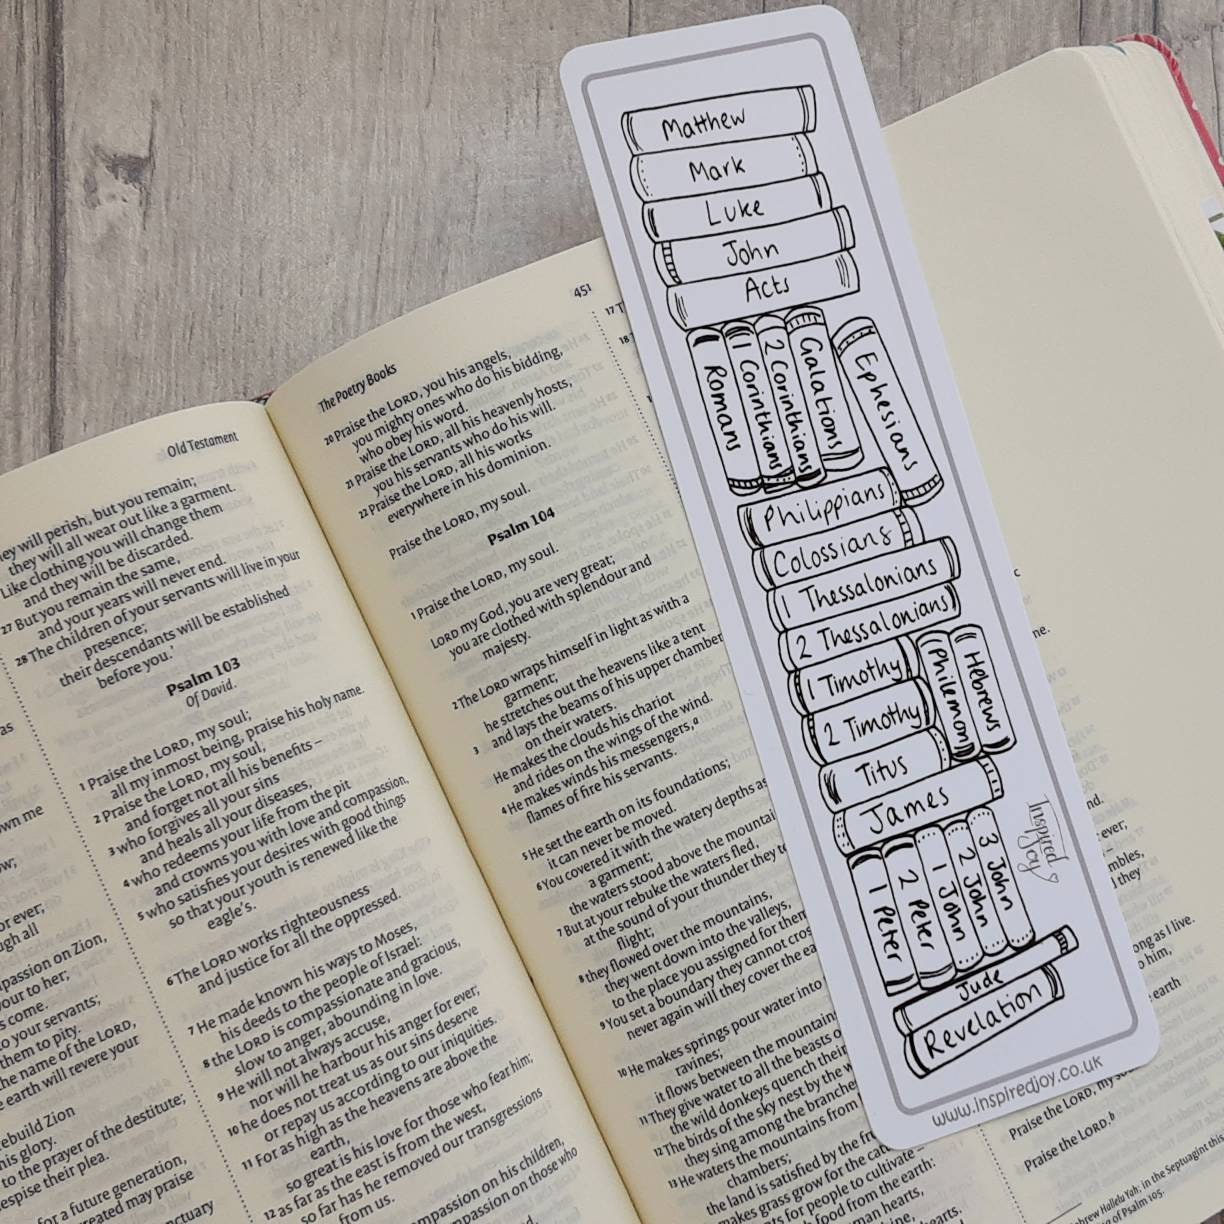 Old Testament
ey will perish, but you remain;
they will all wear out like a garment.
Like clothing you will change them
and they will be discarded.
27 But you remain the same,
and your years will never end.
28 The children of your servants will live in your
presence;
their descendants will be established
before you.'
Psalm 103
Of David.
1 Praise the LORD, my soul;
all my inmost being, praise his holy name.
2 Praise the LORD, my soul,
and forget not all his benefits –
3 who forgives all your sins
and heals all your diseases,
4 who redeems your life from the pit
and crowns you with love and compassion,
5 who satisfies your desires with good things
so that your youth is renewed like the
eagle's.
6 The LORD works righteousness
and justice for all the oppressed.
7 He made known his ways to Moses,
his deeds to the people of Israel:
8 the LORD is compassionate and gracious,
slow to anger, abounding in love.
9 He will not always accuse,
nor will he harbour his anger for ever;
10 he does not treat us as our sins deserve
or repay us according to our iniquities.
11 For as high as the heavens are above the
earth,
so great is his love for those who fear him;
12 as far as the east is from the west,
so far has he removed our transgressions
from us.
mpassion on his children,
mpassion on those who
own me
or ever;
ugh all
passion on Zion,
our to her;
s come.
o your servants;
them to pity.
he name of the LORD,
e earth will revere your
ebuild Zion
his glory.
to the prayer of the destitute;
espise their plea.
for a future generation,
reated may praise
nctuary
The Poetry Books
451
20 Praise the LORD, you his angels,
you mighty ones who do his bidding,
who obey his word.
21 Praise the LORD, all his heavenly hosts,
you his servants who do his will.
22 Praise the LORD, all his works
everywhere in his dominion.
Praise the LORD, my soul.
Psalm 104
1 Praise the LORD, my soul.
LORD my God, you are very great;
you are clothed with splendour and
majesty.
2 The LORD wraps himself in light as with a
garment;
he stretches out the heavens like a tent
3 and lays the beams of his upper chamber
on their waters.
He makes the clouds his chariot
and rides on the wings of the wind.
4 He makes winds his messengers,a
flames of fire his servants.
5 He set the earth on its foundations;
it can never be moved.
6 You covered it with the watery depths as
a garment;
the waters stood above the mountai
7 But at your rebuke the waters fled,
at the sound of your thunder they to
flight;
8 they flowed over the mountains,
they went down into the valleys,
to the place you assigned for them
9 You set a boundary they cannot cros
never again will they cover the ea
10 He makes springs pour water into
ravines;
it flows between the mountain
11 They give water to all the beasts o
the wild donkeys quench their
12 The birds of the sky nest by the w
they sing among the branche
13 He waters the mountains from
chambers;
the land is satisfied by the fr
makes grass grow for the cat
ts for people to cultivate –
food from the earth:
17 T
18
Matthew
Mark
Luke
John
Acts
Romans
1 Corinthians
2 Corinthians
Galations
Ephesians
Philippians
Colossians
1 Thessalonians
2 Thessalonians
1 Timothy
2 Timothy
Titus
Philemon
Hebrews
James
1 Peter
2 Peter
1 John
2 John
3 John
Jude
Revelation
Inspired
Joy
www.inspiredjoy.co.uk
ne.
nd.
ever;
mbles,
they
ong as I live.
o him,
earth
Praise the LORD, my
Praise the LORD.b